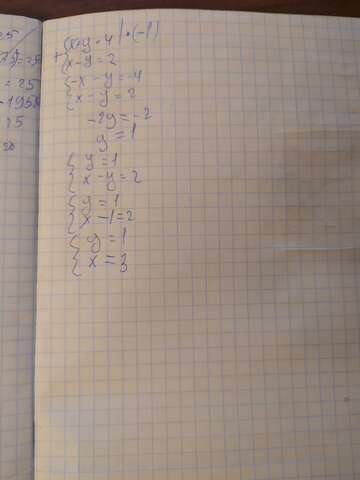 25
=25
=25
-195
25
20
+ { x+y=4 | ·(-1)
x-y=2
{ -x-y=-4
x-y=2
-2y=-2
y=1
{ y=1
x-y=2
{ y=1
x-1=2
{ y=1
x=3